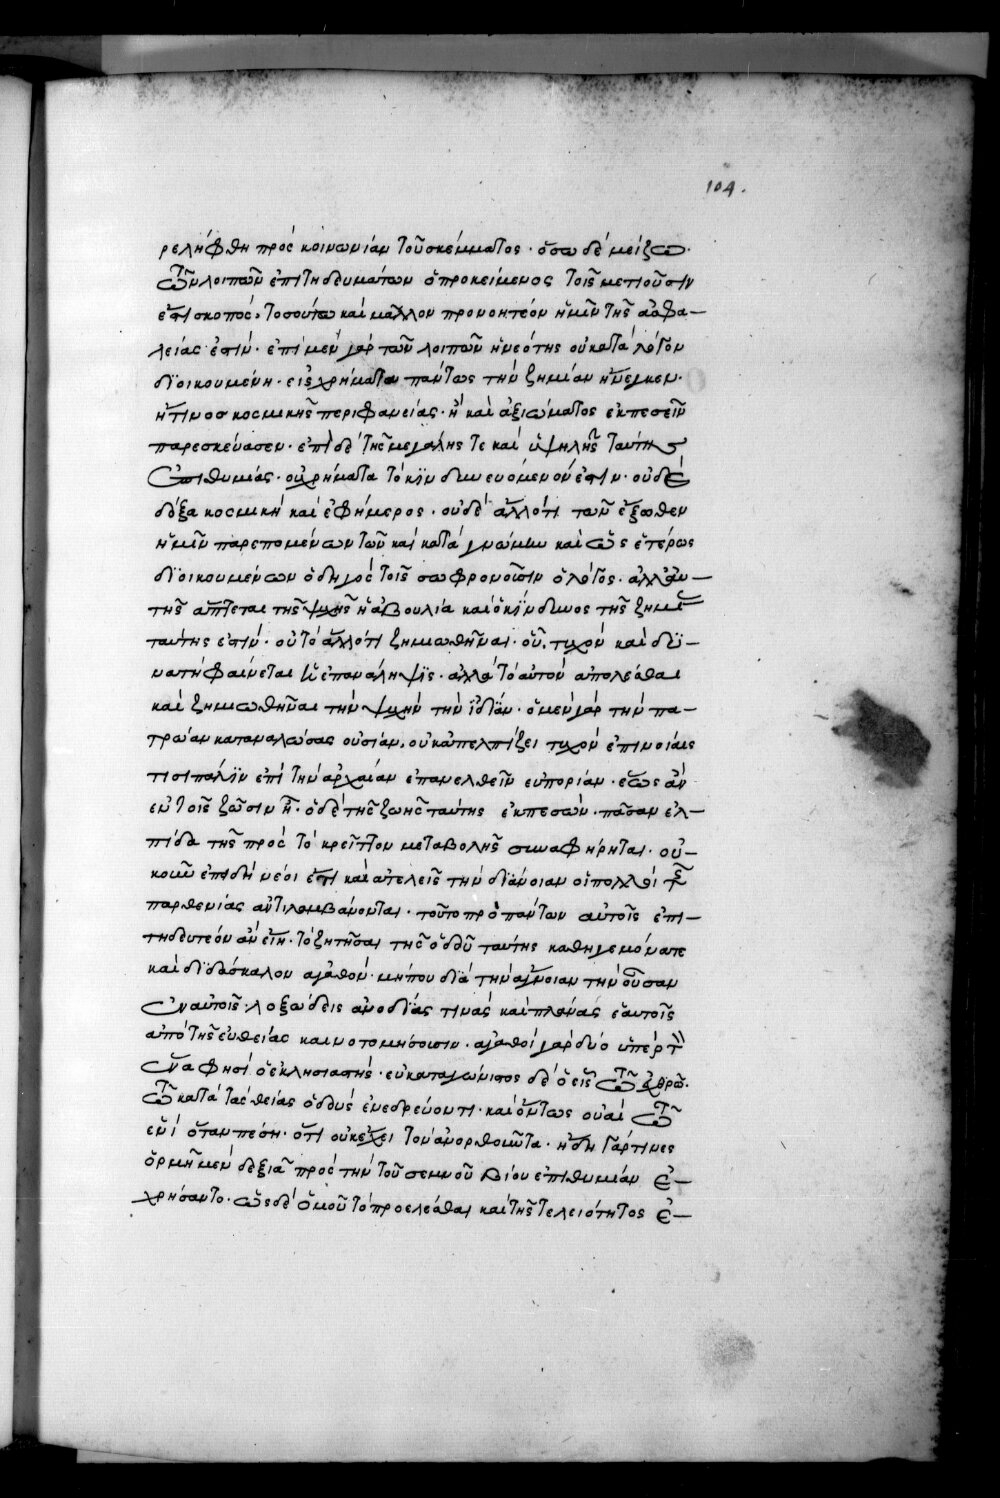 104.
ρελήφθη πρὸς κοινωνίαν τοῦ σκέμματος· ὅσω δὲ μείζω·
τῶν λοιπῶν ἐπιτηδευμάτων ὁ προκείμενος τοῖς μετιοῦσιν
ἐστι σκοπός, τοσούτω καὶ μᾶλλον προνοητέον ἡμῖν τῆς ἀσφα–
λείας ἐστίν· ἐπὶ μὲν γὰρ τῶν λοιπῶν ἡ νεότης οὐ κατὰ λόγον
διοικουμένη· εἰς χρήματα πάντως τὴν ζημίαν ἤνεγκεν·
ἤ τινος κοσμικῆς περιφανείας· ἢ καὶ ἀξιώματος ἐκπεσεῖν
παρεσκεύασεν· ἐπὶ δὲ τῆς μεγάλης τε καὶ ὑψηλῆς ταύτης
ἐπιθυμίας· οὐ χρήματα τὸ κινδυνευόμενόν ἐστιν· οὐδὲ
δόξα κοσμικὴ καὶ ἐφήμερος· οὐδὲ ἄλλό τι τῶν ἔξωθεν
ἡμῖν παρεπομένων τῶν καὶ κατὰ γνώμην καὶ ὡς ἑτέρως
διοικουμένων ὀλίγος τοῖς σωφρονοῦσιν ὁ λόγος· ἀλλ' αὐ–
τῆς ἅπτεται τῆς ψυχῆς ἡ ἀβουλία καὶ ὁ κίνδυνος τῆς ζημί
ταύτης ἐστίν· οὐ τὸ ἄλλό τι ζημιωθῆναι· οὗ, τυχὸν καὶ δυ–
νατὴ φαίνεται ἡ ἐπανάληψις· ἀλλὰ τὸ αὐτὸν ἀπολέσθαι
καὶ ζημιωθῆναι τὴν ψυχὴν τὴν ἰδίαν· ὁ μὲν γὰρ τὴν πα–
τρώαν καταναλώσας οὐσίαν, οὐκ ἀπελπίζει τυχὸν ἐπινοίαις
τισὶ πάλιν ἐπὶ τὴν ἀρχαίαν ἐπανελθεῖν εὐπορίαν· ἕως ἂν
ἐν τοῖς ζῶσιν ᾖ· ὁ δὲ τῆς ζωῆς ταύτης ἐκπεσών· πᾶσαν ἐλ–
πίδα τῆς πρὸς τὸ κρεῖττον μεταβολῆς συναφήρηται· οὐ–
κοῦν ἐπειδὴ νέοι ἔτι καὶ ἀτελεῖς τὴν διάνοιαν οἱ πολλοὶ τῆς
παρθενίας ἀντιλαμβάνονται· τοῦτο πρὸ πάντων αὐτοῖς ἐπι–
τηδευτέον ἂν εἴη· τὸ ζητῆσαι τῆς ὁδοῦ ταύτης καθηγεμόνα τε
καὶ διδάσκαλον ἀγαθόν· μήπου διὰ τὴν ἄγνοιαν τὴν οὖσαν
ἐν αὐτοῖς· λοξώδεις ἀνοδίας τινὰς καὶ πλάνας ἑαυτοῖς
ἀπὸ τῆς εὐθείας καινοτομήσωσιν· ἀγαθοὶ γὰρ δύο ὑπὲρ τὸν
ἕνα φησὶ ὁ ἐκκλησιαστής· εὐκαταγώνιστος δὲ ὁ εἷς τῶ ἐχθρῶ·
τῶ κατὰ τὰς θείας ὁδοὺς ἐνεδρεύοντι· καὶ ὄντως οὐαὶ τῶ
ἑνὶ ὅταν πέση· ὅτι οὐκ ἔχει τὸν ἀνορθοῦντα· ἤδη γάρ τινες
ὁρμῆ μὲν δεξιᾶ πρὸς τὴν τοῦ σεμνοῦ βίου ἐπιθυμίαν ἐ–
χρήσαντο· ὡς δὲ ὁμοῦ τὸ προελέσθαι καὶ τῆς τελειότητος ἐ–